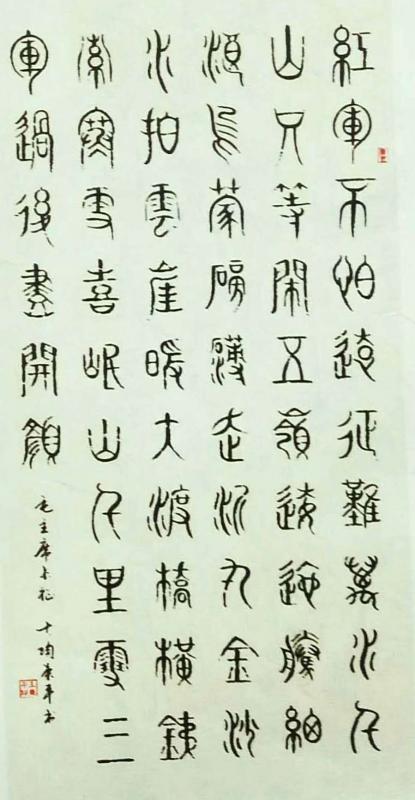 紅軍不怕遠征難萬水千
山只等閑五嶺逶迤騰細
浪烏蒙磅礴走泥丸金沙
水拍雲崖暖大渡橋橫鐵
索寒更喜岷山千里雪三
軍過後盡開顏
毛主席长征